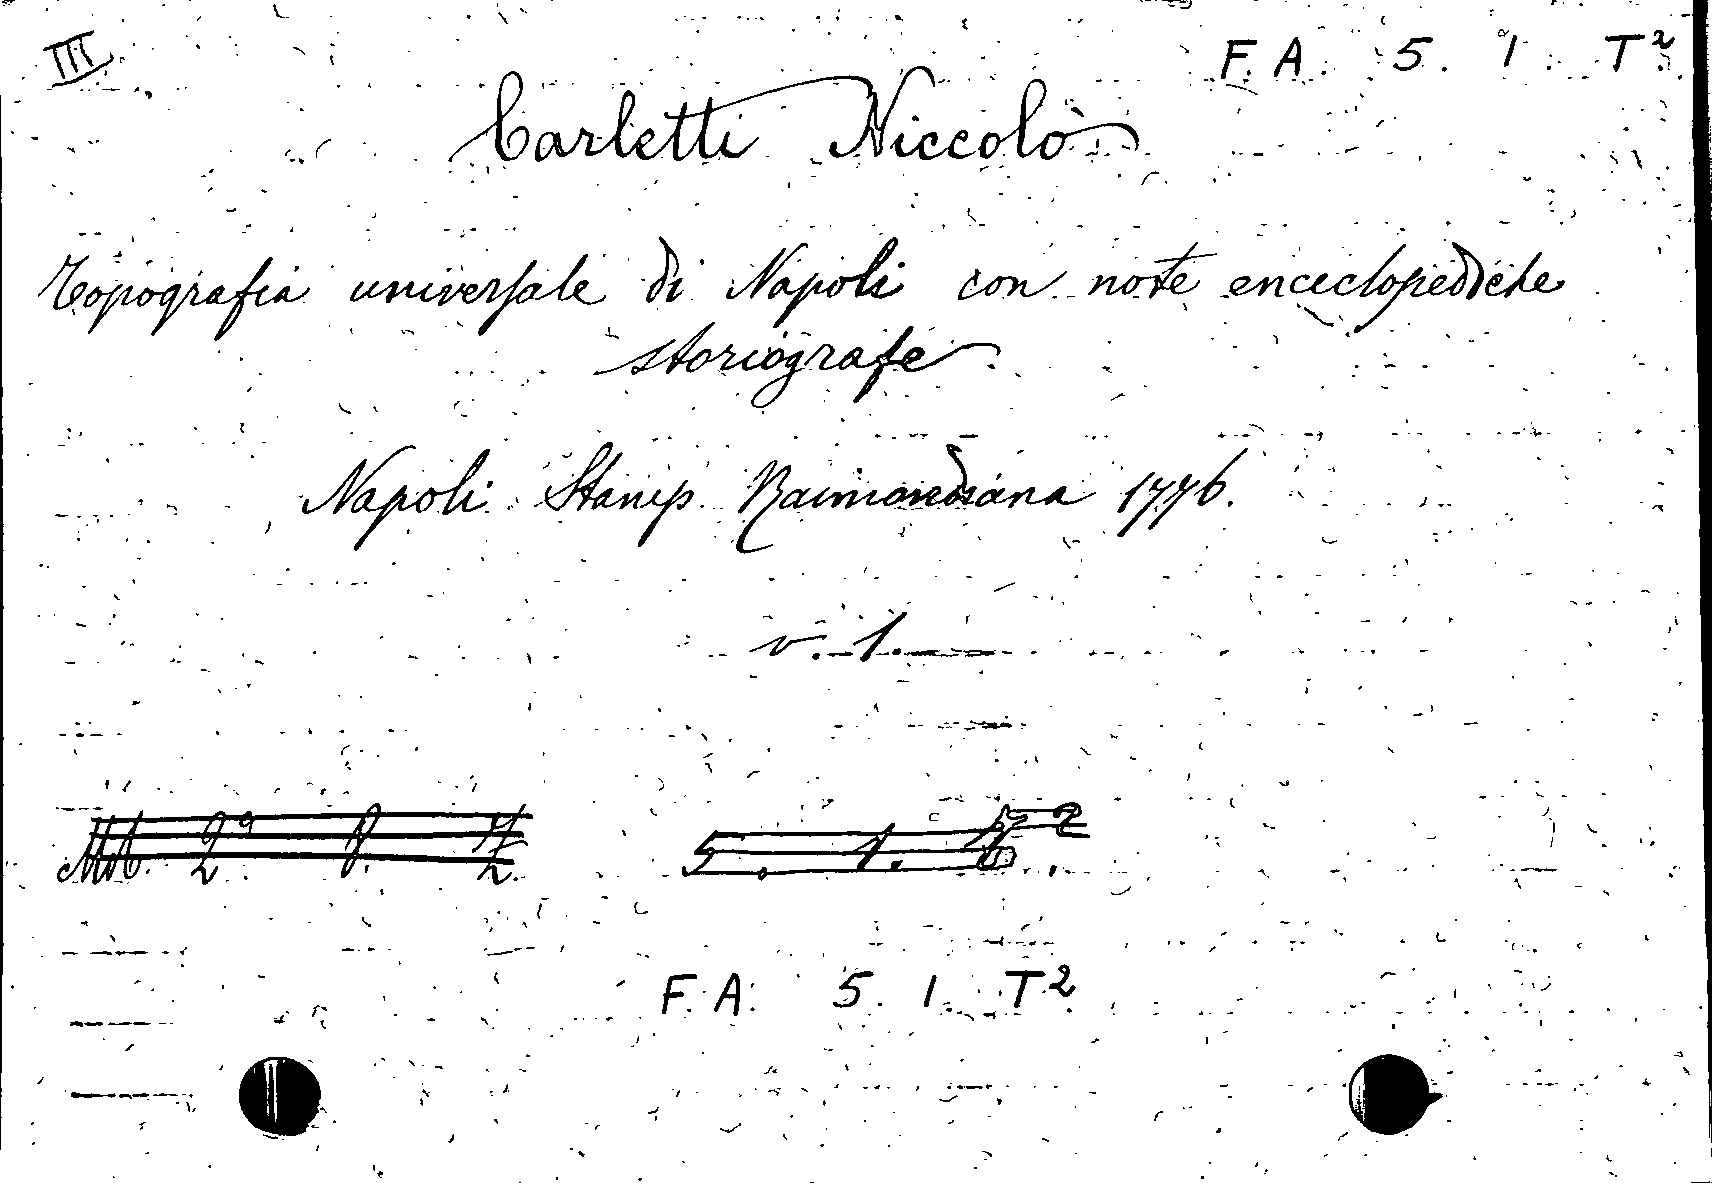 III
F. A. 5. 1 T²
Carletti Niccolò
Topografia universale di Napoli con note enciclopediche
storiografe
Napoli Stamp. Raimondiana 1776.
v. 1.
2ª
5. 1.
F. A. 5. 1. T²